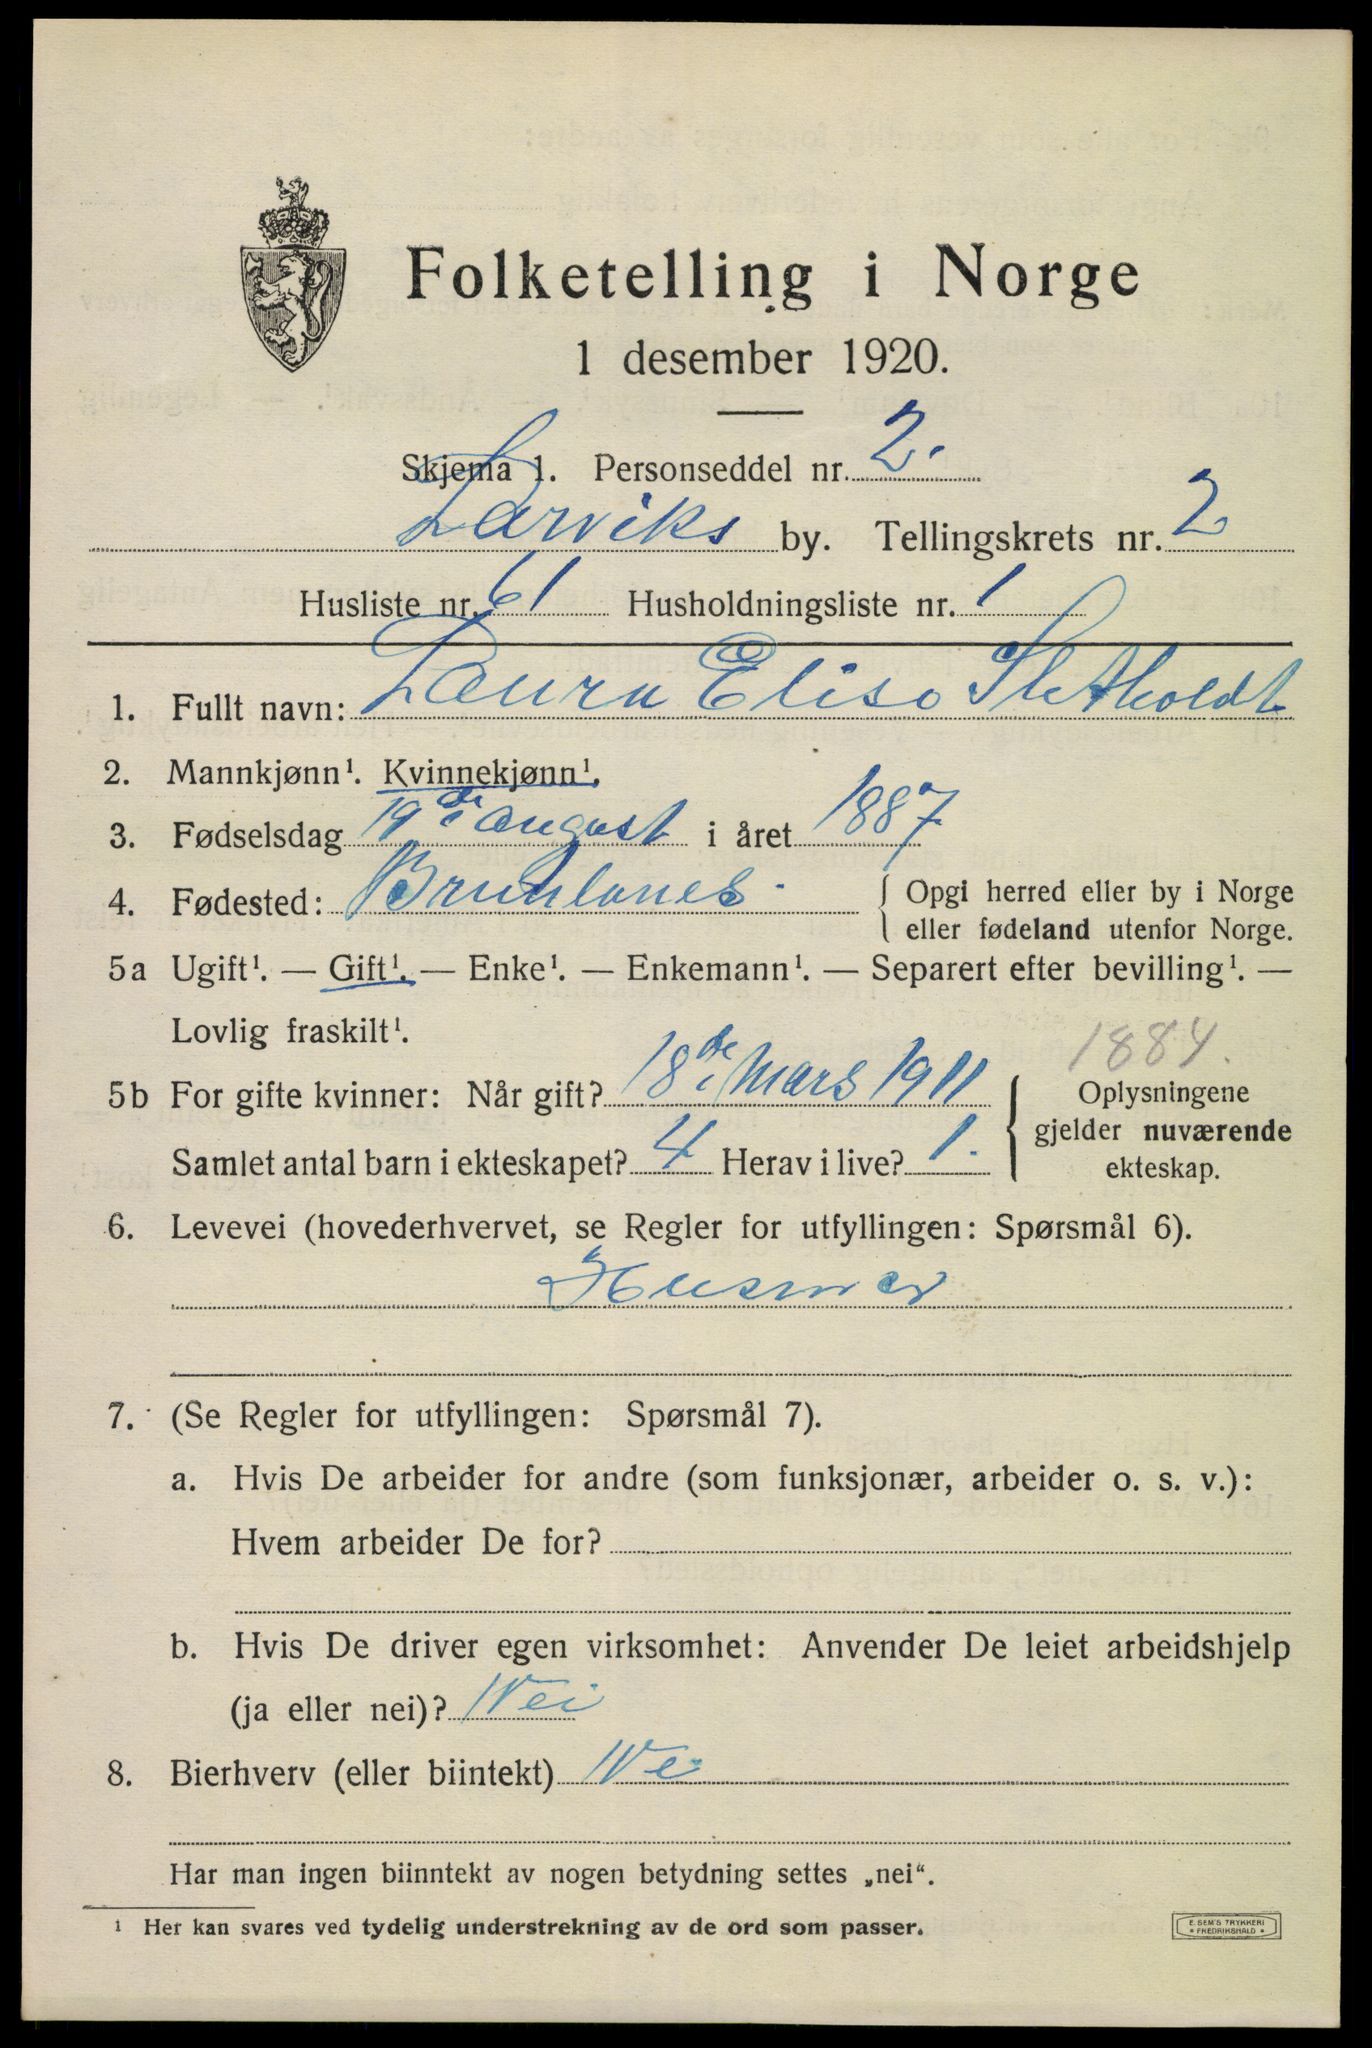 Folketelling i Norge
1 desember 1920.
Skjema 1. Personseddel nr. 2.
Larviks by. Tellingskrets nr. 2
Husliste nr. 61 Husholdningsliste nr. 1
1. Fullt navn: Laura Elise Sletholdt
2. Mannkjønn¹. Kvinnekjønn¹.
3. Fødselsdag 19de august i året 1887
4. Fødested: Brunlanes. { Opgi herred eller by i Norge
eller fødeland utenfor Norge.
5a Ugift¹. — Gift¹. — Enke¹. — Enkemann¹. — Separert efter bevilling¹. —
Lovlig fraskilt¹.
1884.
5b For gifte kvinner: Når gift? 18de Mars 1911 { Oplysningene
gjelder nuværende
Samlet antal barn i ekteskapet? 4 Herav i live? 1.
ekteskap.
6. Levevei (hovederhvervet, se Regler for utfyllingen: Spørsmål 6).
Husmor
7. (Se Regler for utfyllingen: Spørsmål 7).
a. Hvis De arbeider for andre (som funksjonær, arbeider o. s. v.):
Hvem arbeider De for?
b. Hvis De driver egen virksomhet: Anvender De leiet arbeidshjelp
(ja eller nei)? Nei
8. Bierhverv (eller biintekt) Nei
Har man ingen biinntekt av nogen betydning settes „nei“.
¹ Her kan svares ved tydelig understrekning av de ord som passer.
E. SEM'S TRYKKERI
* FREDRIKSHALD *